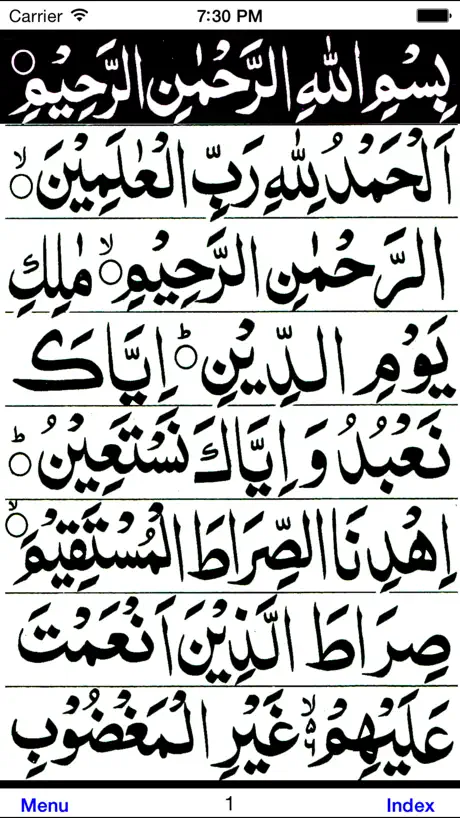 Carrier 7:30 PM
بِسْمِ اللهِ الرَّحْمٰنِ الرَّحِيْمِ ○
اَلْحَمْدُ لِلّٰهِ رَبِّ الْعٰلَمِيْنَ ○ۙ
الرَّحْمٰنِ الرَّحِيْمِ ○ۙ مٰلِكِ
يَوْمِ الدِّيْنِ ○ؕ اِيَّاكَ
نَعْبُدُ وَاِيَّاكَ نَسْتَعِيْنُ ○ؕ
اِهْدِنَا الصِّرَاطَ الْمُسْتَقِيْمَ ○ۙ
صِرَاطَ الَّذِيْنَ اَنْعَمْتَ
عَلَيْهِمْ ۙ۬ۦ غَيْرِ الْمَغْضُوْبِ
Menu 1 Index